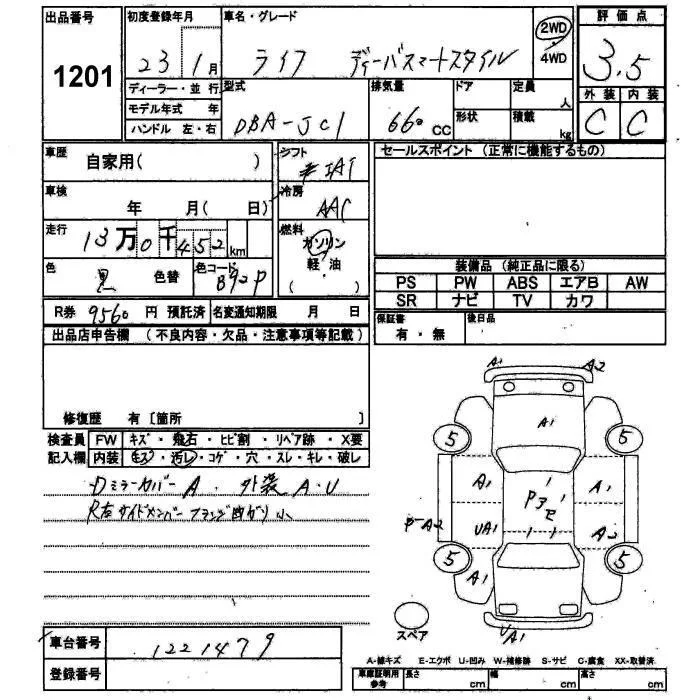 出品番号 初度登録年月 車名・グレード 評価点
1201 23 1月 ライフ ディーバスマートスタイル 2WD 3.5
4WD
ディーラー・並行 型式 排気量 ドア 定員 人 外装 内装
モデル年式 年 DBA-JC1 660 CC 形状 積載 kg C C
ハンドル 左・右
車歴 自家用( ) シフト IAT セールスポイント(正常に機能するもの)
車検 年 月( 日) 冷房 AAC
走行 13万0千452km 燃料 ガソリン
軽・油
( )
色 黒 色替 色コード B92P 装備品(純正品に限る)
PS PW ABS エアB AW
SR ナビ TV カワ
R券 9560 円 預託済 名変通知期限 月 日 保証書 有・無 後日品
出品店申告欄 (不良内容・欠品・注意事項等記載)
修復歴 有〔箇所 〕
検査員 FW キズ・飛石・ヒビ割・リペア跡・X要
記入欄 内装 キズ・汚レ・コゲ・穴・スレ・キレ・破レ
Dミラーカバー A. 外装 A・U
R左サイドメンバーフランジ曲がり小
A1 A2
A1
5 5
A1 A1
P-A2 UA1 A2
5 5
A1
UA1
スペア
車台番号 1221479
登録番号
A-線キズ E-エクボ U-凹み W-補修跡 S-サビ C-腐食 XX-取替済
車庫証明用参考 長さ cm 幅 cm 高さ cm